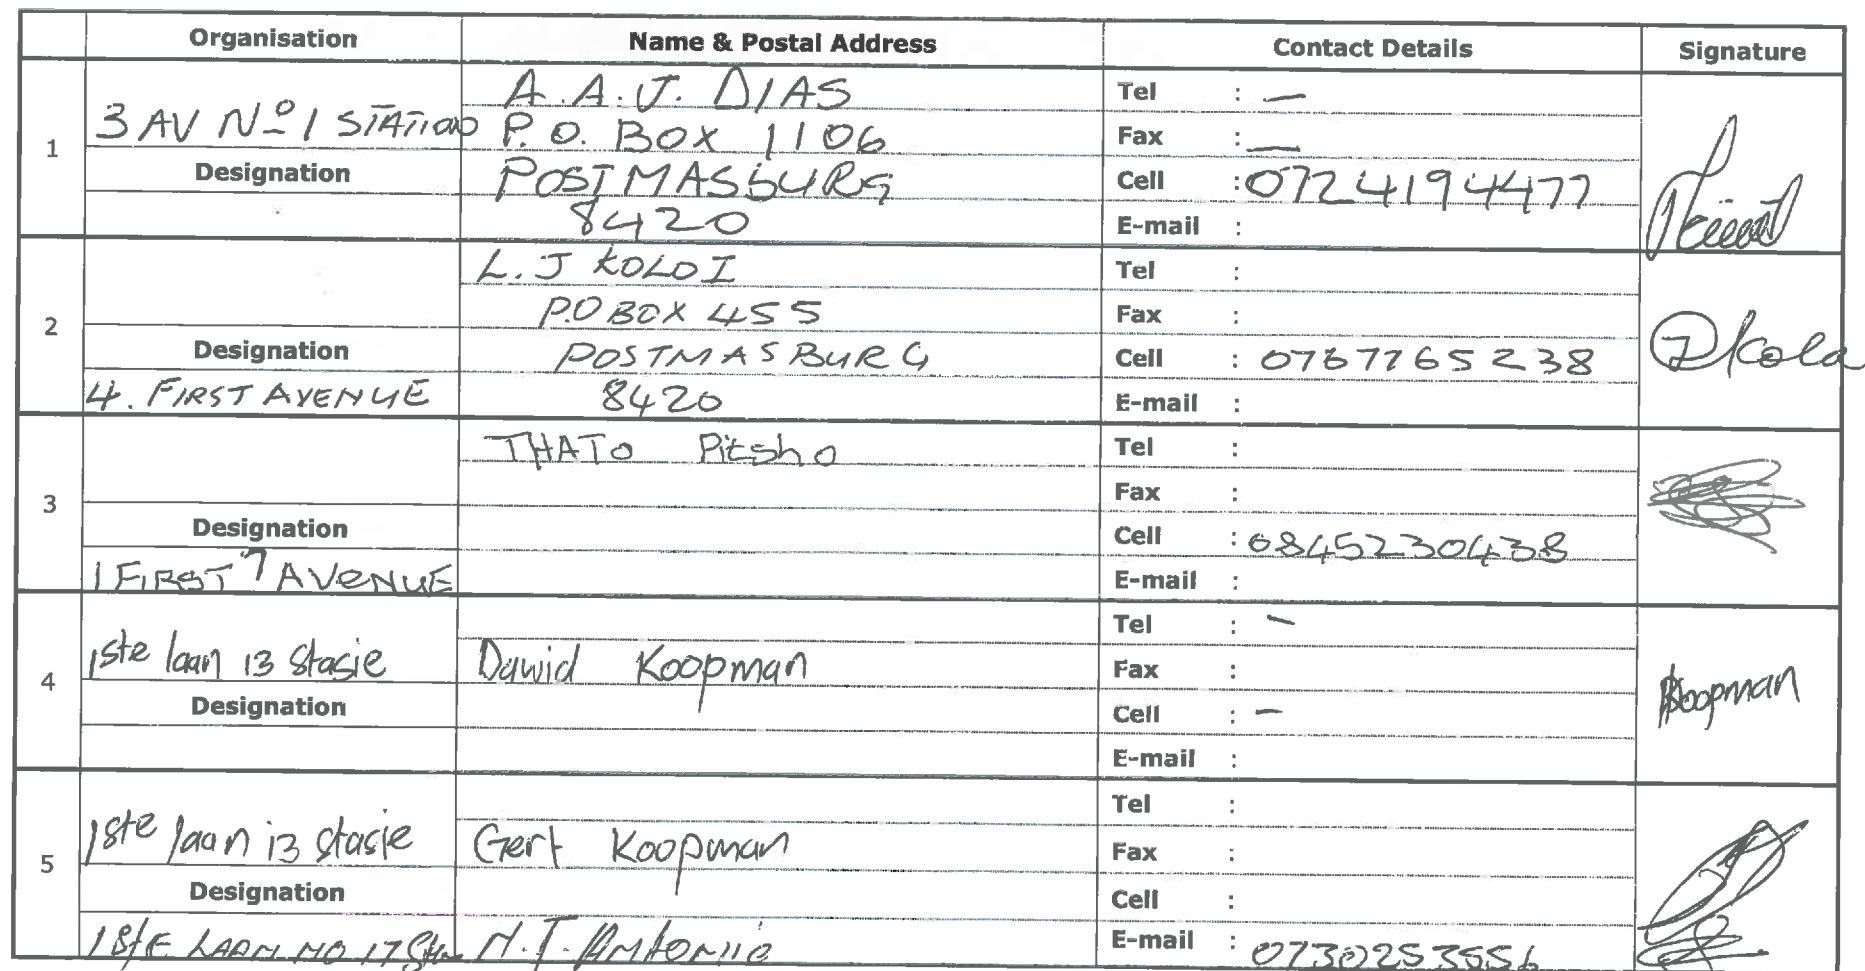 Organisation Name & Postal Address Contact Details Signature
1
3 AV Nº 1 STATION
Designation
A.A.J. DIAS
P.O. BOX 1106
POSTMASBURG
8420
Tel : —
Fax : —
Cell : 0724194477
E-mail :
2
Designation
4. FIRST AVENUE
L.J KOLOI
P.O BOX 455
POSTMASBURG
8420
Tel :
Fax :
Cell : 0767765238
E-mail :
3
Designation
1 FIRST AVENUE
THATO Pitsho
Tel :
Fax :
Cell : 0845230438
E-mail :
4
1ste laan 13 stasie
Designation
Dawid Koopman
Tel : —
Fax :
Cell : —
E-mail :
Koopman
5
1ste laan 13 stasie
Designation
1STE LAAN NO 17
Gert Koopman
N.J.
Tel :
Fax :
Cell :
E-mail : 0730253556